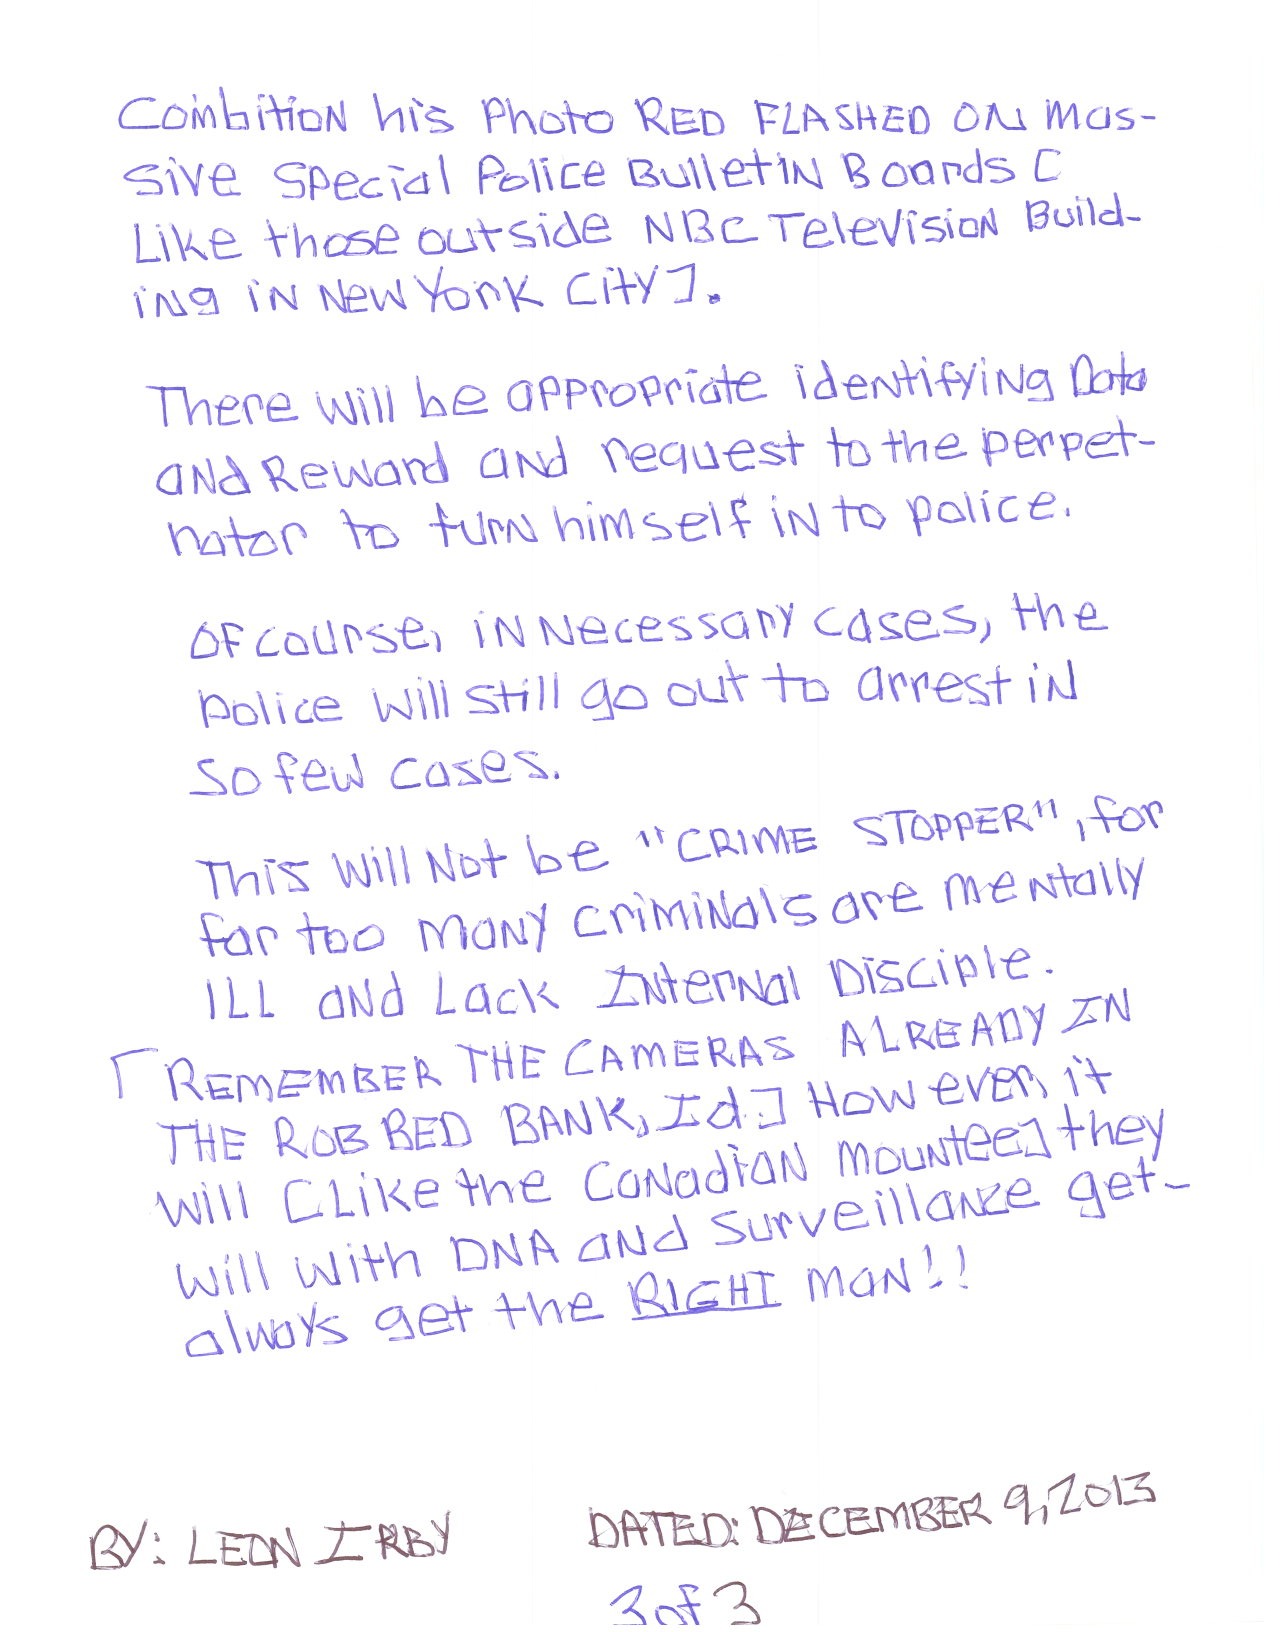 Combition his Photo RED FLASHED ON mas-
sive special Police Bulletin Boards [
Like those outside NBC Television Build-
ing in New York City].
There will be appropriate identifying Data
and Reward and request to the perpet-
nator to turn himself in to police.
Of course, in Necessary cases, the
police will still go out to arrest in
So few cases.
This will Not be "CRIME STOPPER", for
far too many criminals are mentally
ILL and Lack Internal Disciple.
[REMEMBER THE CAMERAS ALREADY IN
THE ROBBED BANK, Id.] However, it
will [Like the Canadian mountee] they
will with DNA and surveillanze get-
always get the RIGHT man!!
BY: LEON IRBY DATED: DECEMBER 9, 2013
3 of 3